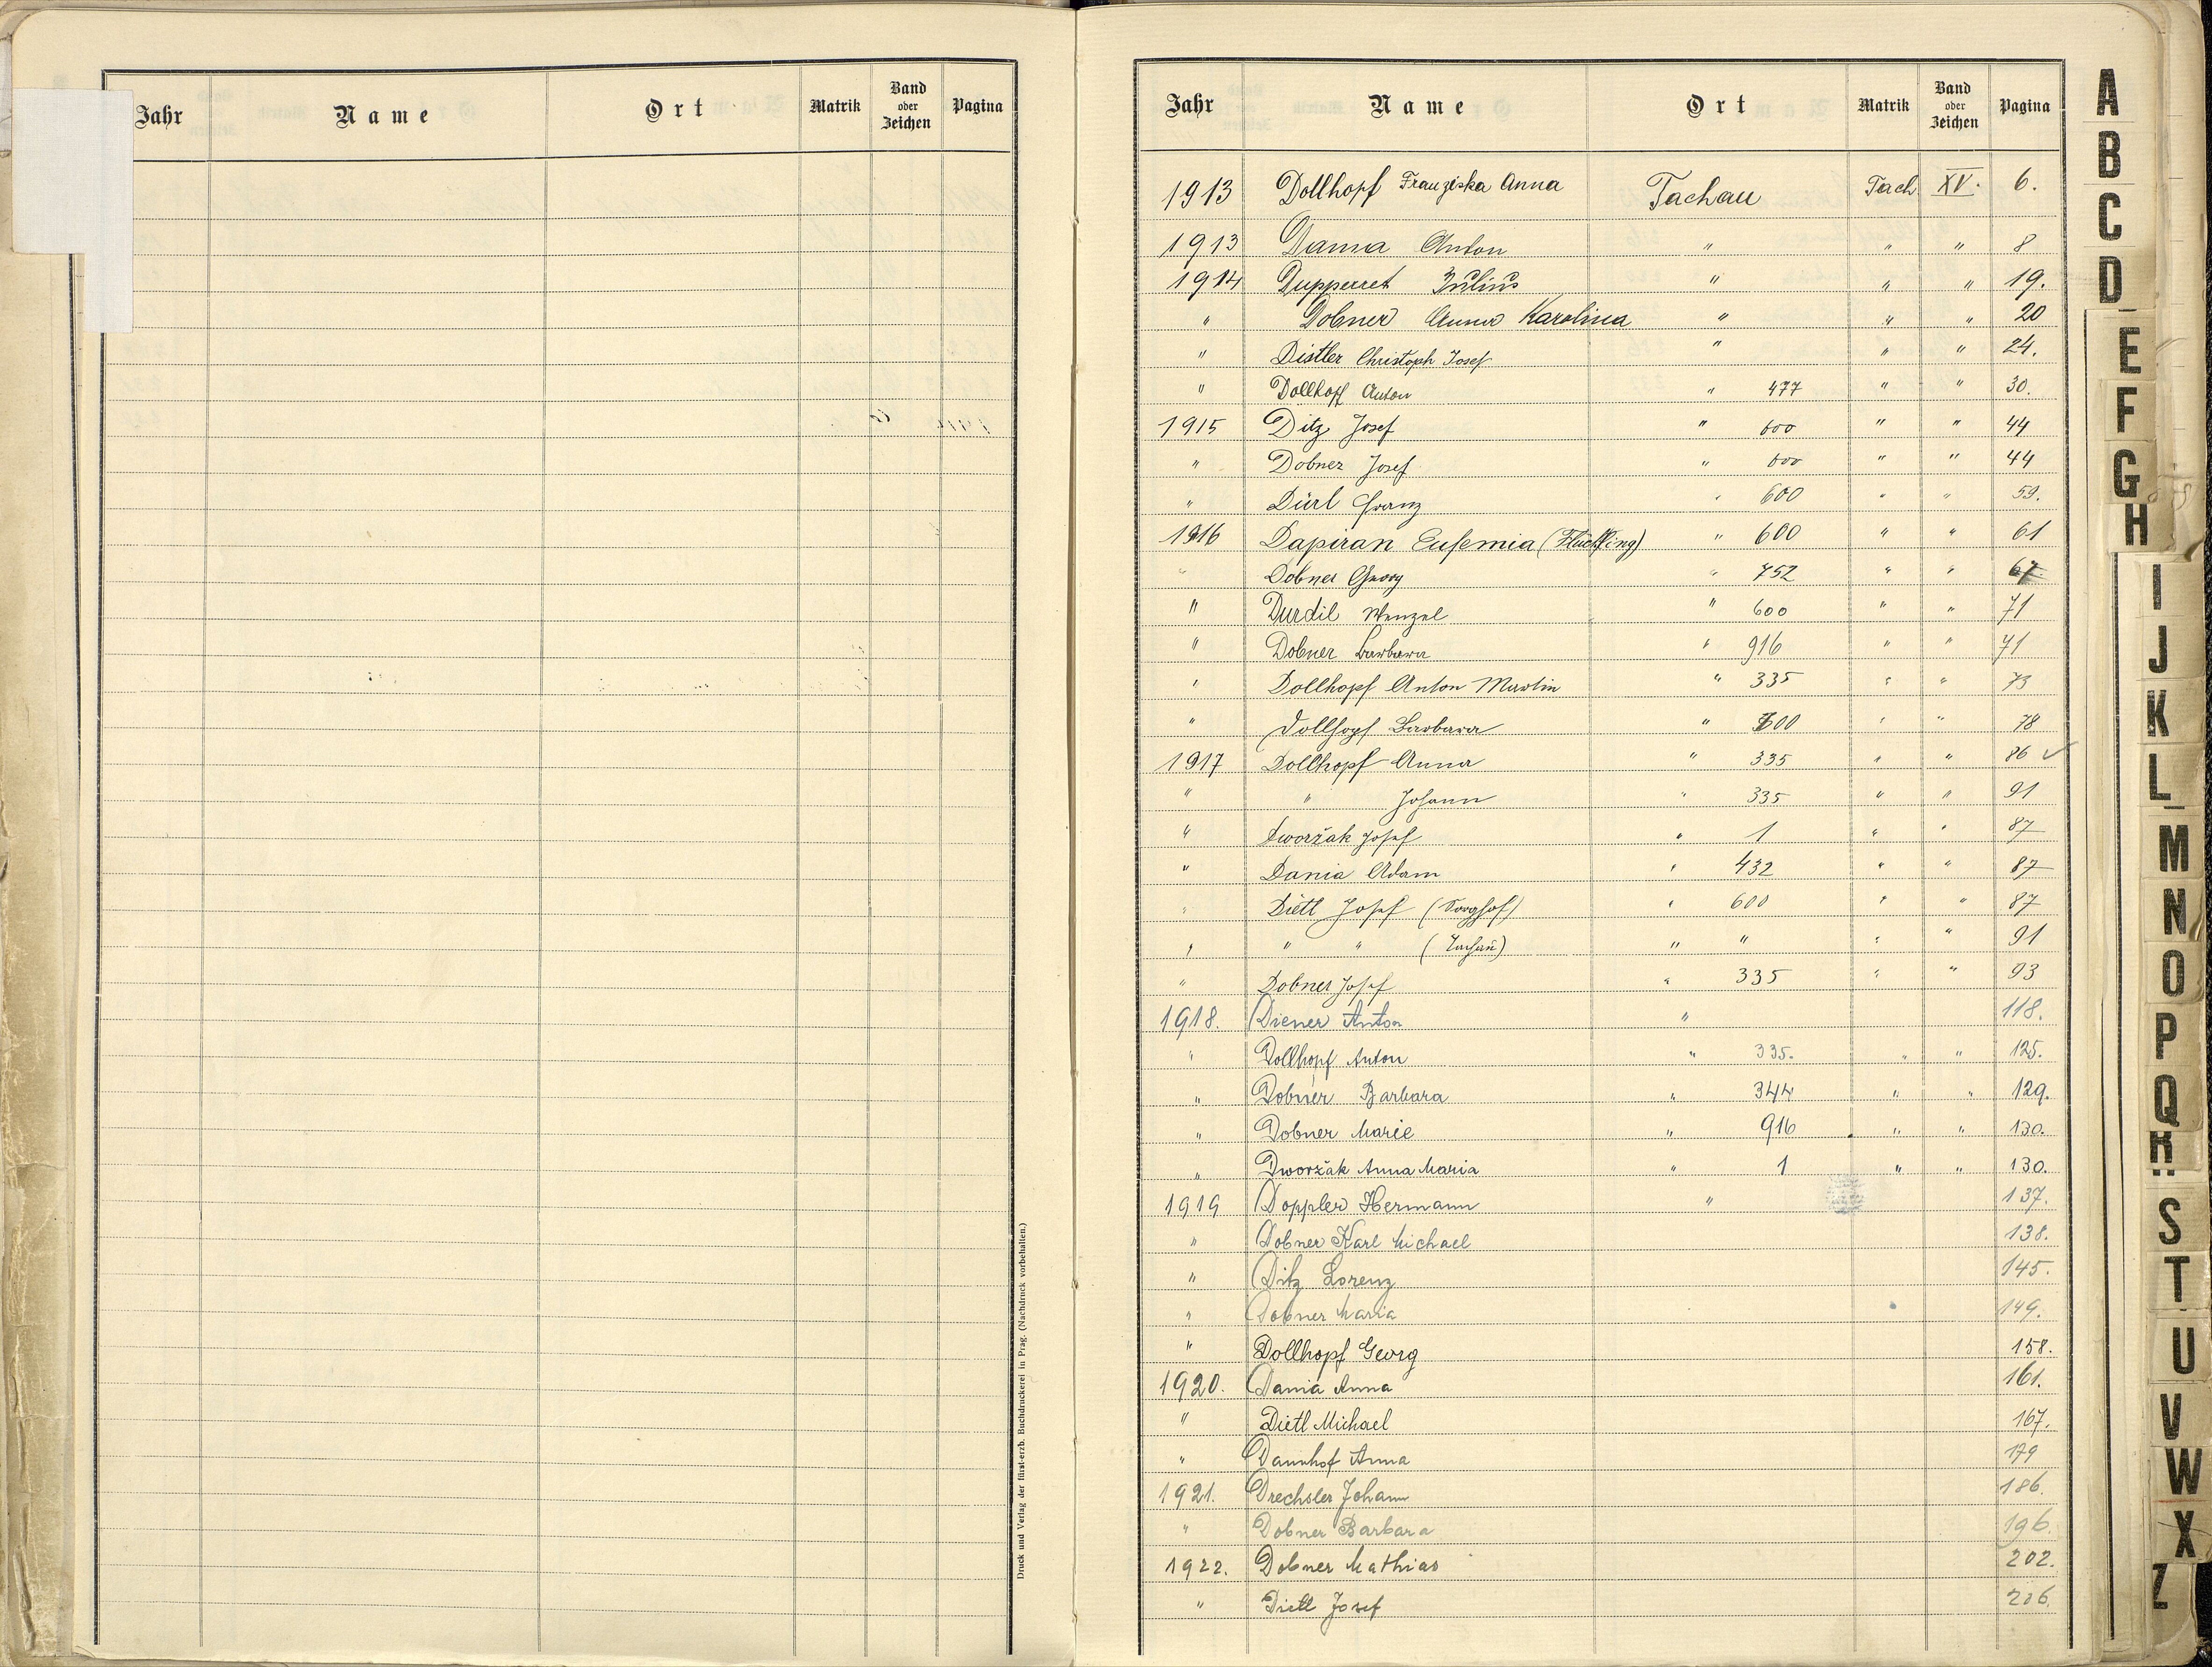 Jahr Name Ort Matrik Band oder Zeichen Pagina
Druck und Verlag der fürst-erzb. Buchdruckerei in Prag. (Nachdruck vorbehalten.)
Jahr Name Ort Matrik Band oder Zeichen Pagina
1913 Dollhopf Franziska Anna Tachau Tach XV. 6.
1913 Dama Anton " " " 8
1914 Dupperret Julius " " " 19.
" Dobner Anna Karolina " " " 20
" Distler Christoph Josef " " " 24.
" Dollhopf Anton " 477 " " 30.
1915 Ditz Josef " 600 " " 44
" Dobner Josef " 600 " " 44
" Dürl Franz " 600 " " 59.
1916 Dapiran Eufemia (Flüchtling) " 600 " " 61
" Dobner Georg " 752 " " 67
" Durdil Wenzel " 600 " " 71
" Dobner Barbara " 916 " " 71
" Dollhopf Anton Martin " 335 " " 73
" Dollhopf Barbara " 600 " " 78
1917 Dollhopf Anna " 335 " " 86 ✓
" " Johann " 335 " " 91
" Dworžak Josef " 1 " " 87
" Dania Adam " 432 " " 87
" Dietl Josef (Sorghof) " 600 " " 87
" " " (Tachau) " " " " 91
" Dobner Josef " 335 " " 93
1918. Diener Anton " 118.
" Dollhopf Anton " 335. " " 125.
" Dobner Barbara " 344 " " 129.
" Dobner Marie " 916 " " 130.
" Dworžak Anna Maria " 1 " " 130.
1919 Doppler Hermann " 137.
" Dobner Karl Michael 138.
" Ditz Lorenz 145.
" Dobner Maria 149.
" Dollhopf Georg 158.
1920. Dania Anna 161.
" Dietl Michael 167.
" Dannhof Anna 179
1921. Drechsler Johann 186.
" Dobner Barbara 196.
1922. Dobner Mathias 202.
" Dietl Josef 206.
A
B
C
D
E
F
G
H
I
J
K
L
M
N
O
P
Q
R
S
T
U
V
W
X
Z